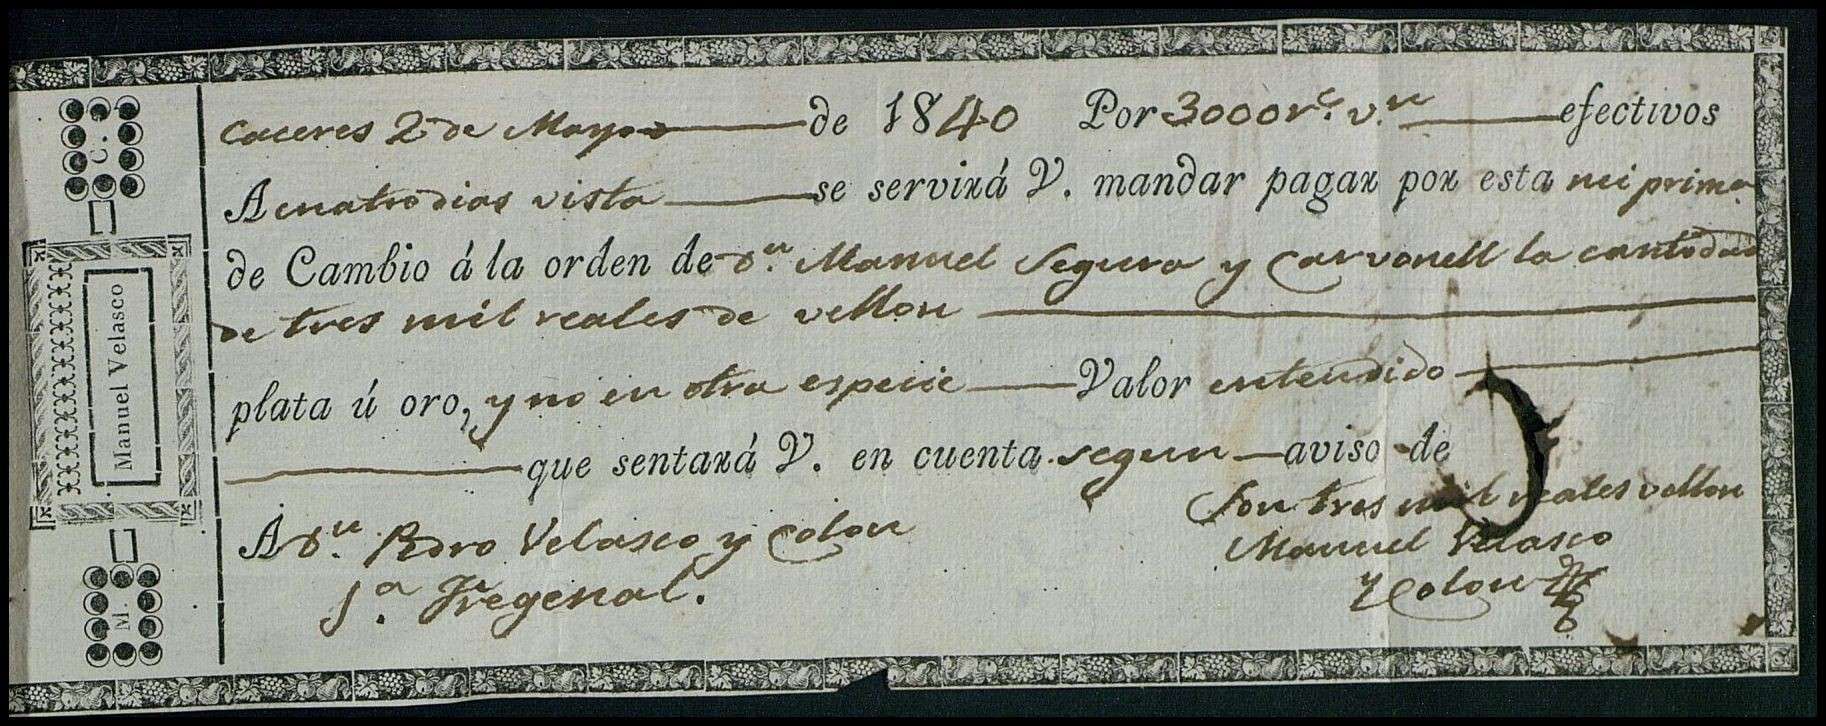 C.
Manuel Velasco
M.
Caceres 2 de Mayo de 1840 Por 3000 r.s v.n efectivos
A cuatro dias vista se servirá V. mandar pagar por esta mi prima.
de Cambio á la orden de d.n Manuel Segura y Carvonell la cantidad
de tres mil reales de vellon
plata ú oro, y no en otra especie Valor entendido
que sentará V. en cuenta segun aviso de
Son tres mil reales vellon
A d.n Pedro Velasco y Colon
Manuel Velasco
y Colon
Fregenal.